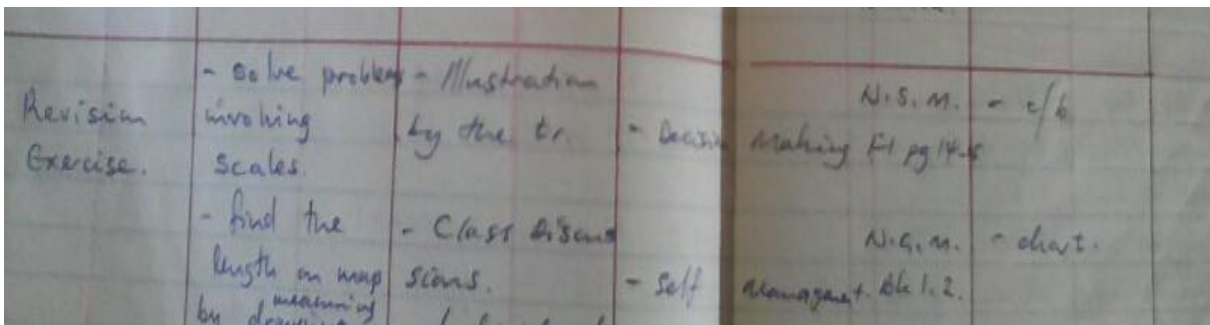 Revision
Exercise.
- solve problem
involving
scales.
- find the
length on map
measuring
by
- Illustration
by the tr.
- Class Discus
sions.
- Decision Making
- Self Management.
N.S.M.
F1 pg 14-15
N.G.M.
bk 1.2.
- c/b
- chart.